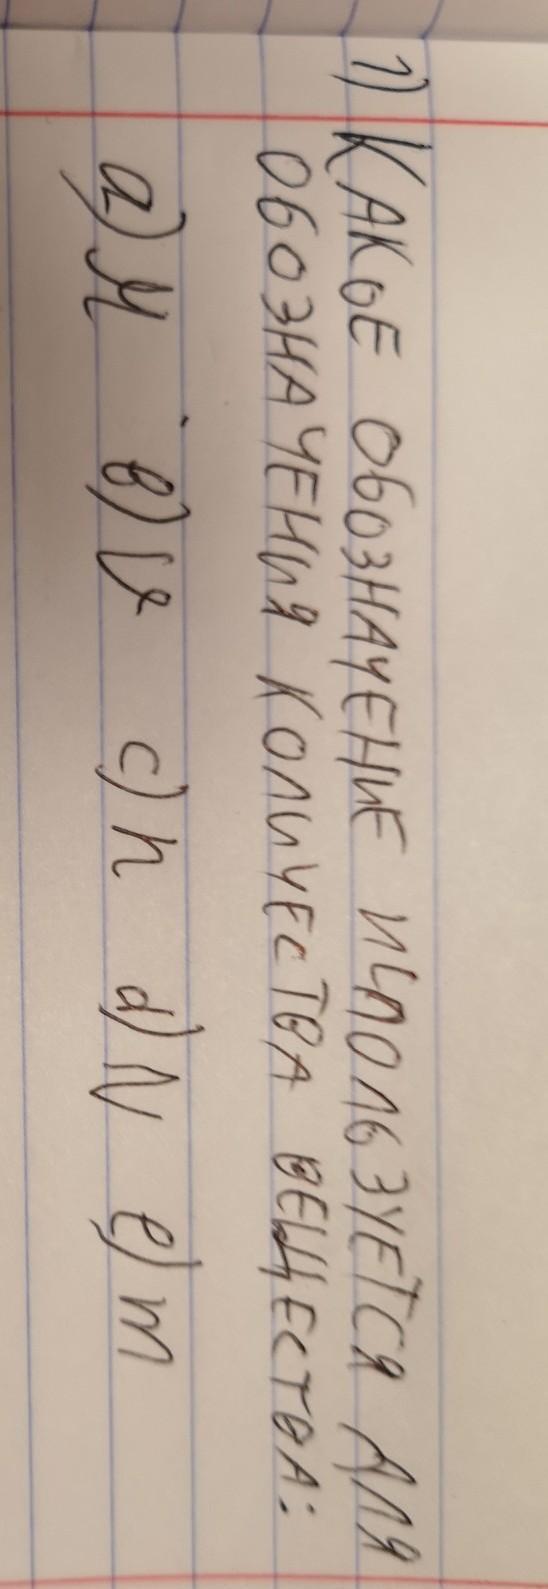 1) КАКОЕ ОБОЗНАЧЕНИЕ ИСПОЛЬЗУЕТСЯ ДЛЯ
ОБОЗНАЧЕНИЯ КОЛИЧЕСТВА ВЕЩЕСТВА:
a) M b) V c) n d) N e) m